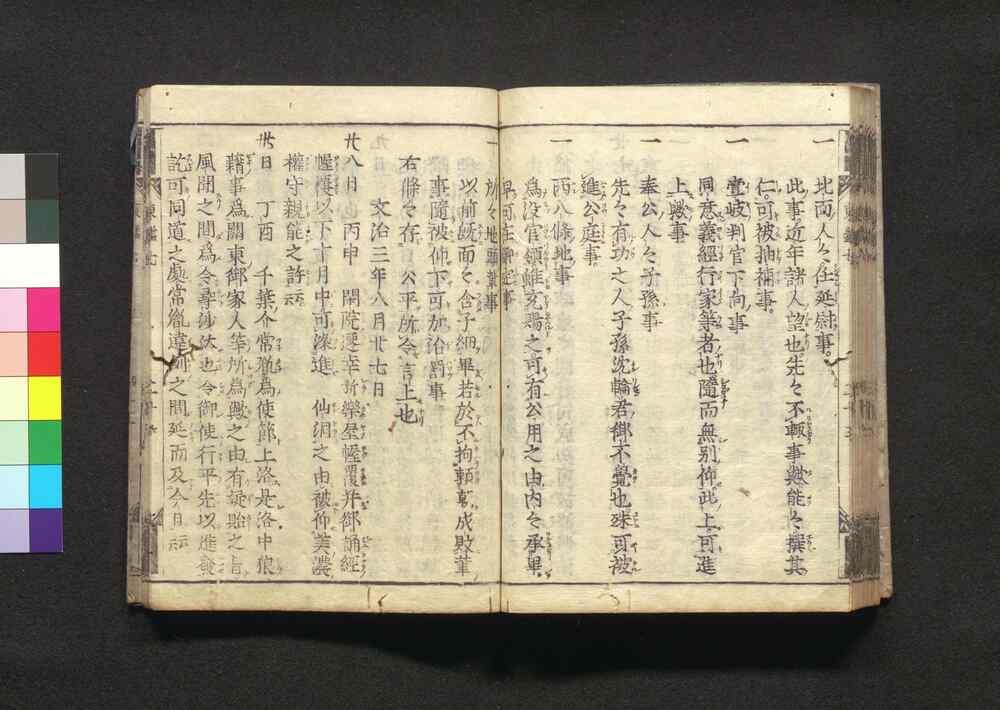 一 北面人々任延尉事。
此事近年諸人望也先々不輙事歟能々撰其
仁。可被抽補事。
一 壹岐判官下向事
同意義經行家等者也随而無別仰此上可進
上歟事
一 奉公人々子孫事
先々有功之人子孫沈輪君御不覺也殊可被
進公庭事
一 西八條地事
為没官領雖充賜之可有公用之由内々承畢。
一 所々地頭輩事
以前既面々含子細畢若於不拘頼朝成敗輩
事隨被仰下可加治罰事
右條々存公平所令言上也
文治三年八月廿七日
廿八日 丙申 閑院遷幸 樂屋幄覆并御誦經
幄幔以下十月中可漆進 仙洞之由被仰美濃
權守親能之許云云
卅日 丁酉 千葉介常胤為使節上洛是洛中狼
藉事為關東御家人等所為歟之由有疑貽之旨
風聞之間為令尋沙汰也令御使行平先以進發
訖可同道之處常胤違例之間延而及今日云云